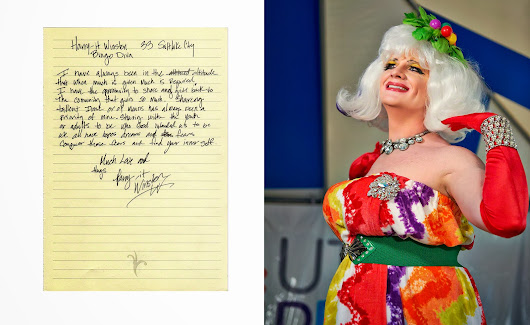 Harry-it Winston 33 Salt Lake City
Bingo Diva
I have always been in the attitude
that when much is given much is required.
I have the opportunity to share and give back to
the community that gives so much. Sharing
talent Time or of means has always been a
priority of mine sharing with the youth
or adults to be who God intended us to be
we all have hopes dreams and fears
Conquer those fears and find your inner self
Much Love and
hugs
Harry-it
Winston
UT